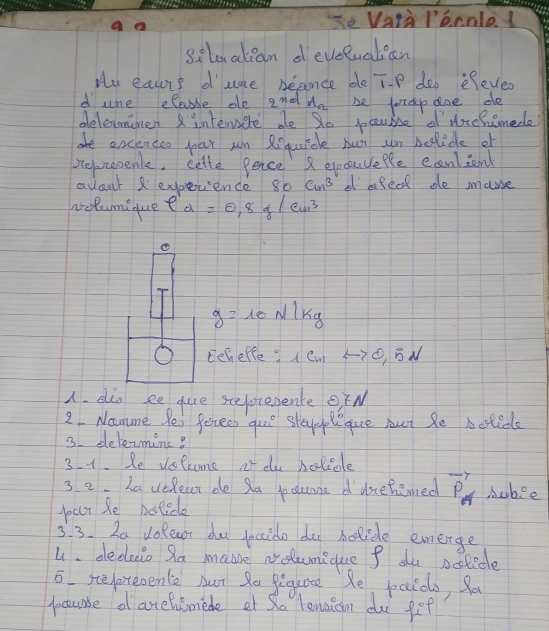 Je Vais à l'école !
Situation d'evaluation
Au cours d'une séance de T.P des élèves
d'une classe de 2nd A2 se propose de
determiner l'intensité de la pousse d'Archimede
de exercée par un liquide sur un solide et
represente. cette force l'eprouvette contient
avant l'experience 80 cm³ d'alcool de masse
volumique ρa = 0,8 g/cm³
g = 10 N/kg
Echelle : 1 cm ↔ 0,5 N
1- dis ce que represente 0,7N
2- Nomme les forces qui s'applique sur le solide
3- determine :
3-1- le volume v du solide
3.2- La valeur de la pousse d'Archimed P_A subie
par le solide
3.3- La valeur du poids du solide emerge
4- deduis la masse volumique ρ du solide
5- represente sur la figure le poids, la
pousse d'archimède et la tension du fil